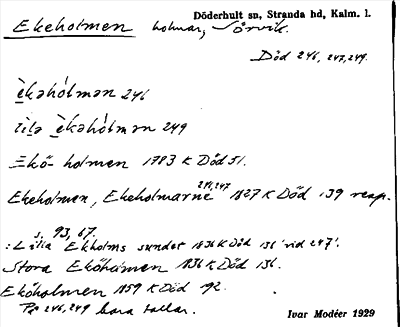 Döderhult sn, Stranda hd, Kalm. l.
Ekeholmen holmar, Sörvik.
Död 246, 247, 249.
èkəhól̀mən 246
lìlə èkəhól̀mən 249
Ekö- holmen 1783 K Död 51.
246, 247
Ekeholmen, Ekeholmarne 1827 K Död 139 resp.
s. 93, 67.
: Lilla Ekholms sundet 1836 K Död 136 'vid 247'.
Stora Eköholmen 1836 K Död 136.
Eköholmen 1859 K Död 192.
På 246, 249 bara tallar.
Ivar Modéer 1929